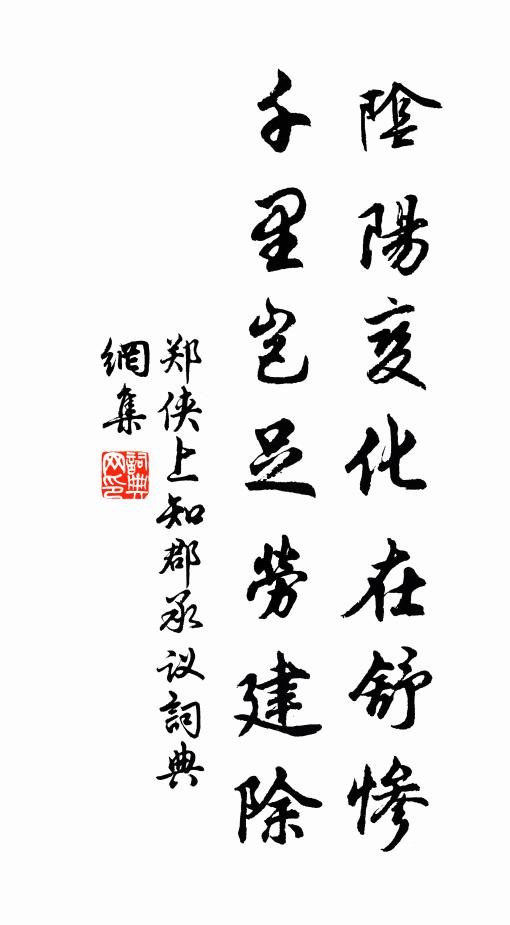 陰陽变化在舒慘
千里岂足勞建除
郑侠上知郡承议詞典
網集
詞典网印